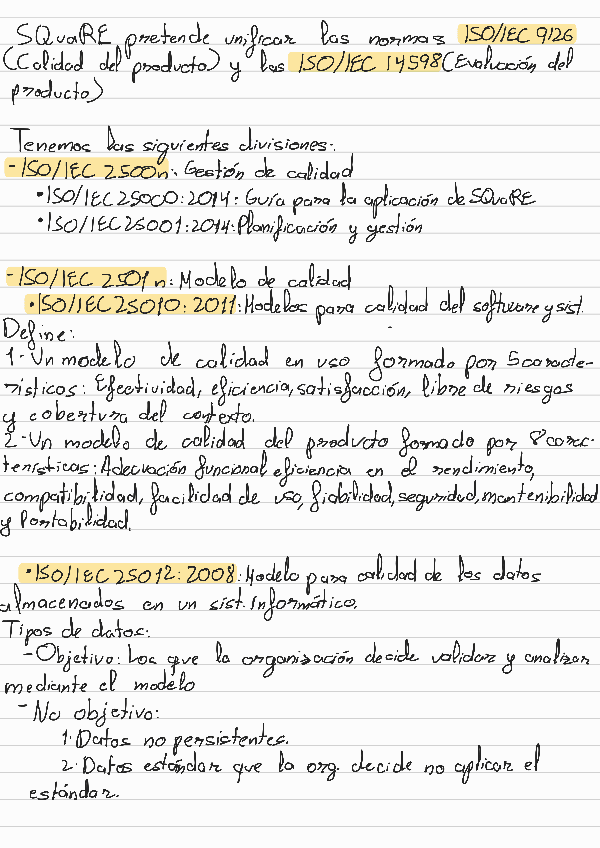 SQuaRE pretende unificar las normas ISO/IEC 9126
(Calidad del producto) y las ISO/IEC 14598 (Evaluación del
producto)
Tenemos las siguientes divisiones:
- ISO/IEC 2500n: Gestión de calidad
• ISO/IEC 25000:2014: Guía para la aplicación de SQuaRE
• ISO/IEC 25001:2014: Planificación y gestión
- ISO/IEC 2501n: Modelo de calidad
• ISO/IEC 25010:2011: Modelos para calidad del software y sist.
Define:
1-Un modelo de calidad en uso formado por 5 caracte-
rísticos: Efectividad, eficiencia, satisfacción, libre de riesgos
y cobertura del contexto.
2-Un modelo de calidad del producto formado por 8 carac-
terísticas: Adecuación funcional, eficiencia en el rendimiento,
compatibilidad, facilidad de uso, fiabilidad, seguridad, mantenibilidad
y Portabilidad.
• ISO/IEC 25012:2008: Modelo para calidad de los datos
almacenados en un sist. Informático.
Tipos de datos:
- Objetivo: Los que la organización decide validar y analizar
mediante el modelo
- No objetivo:
1. Datos no persistentes.
2. Datos estándar que la org. decide no aplicar el
estándar.